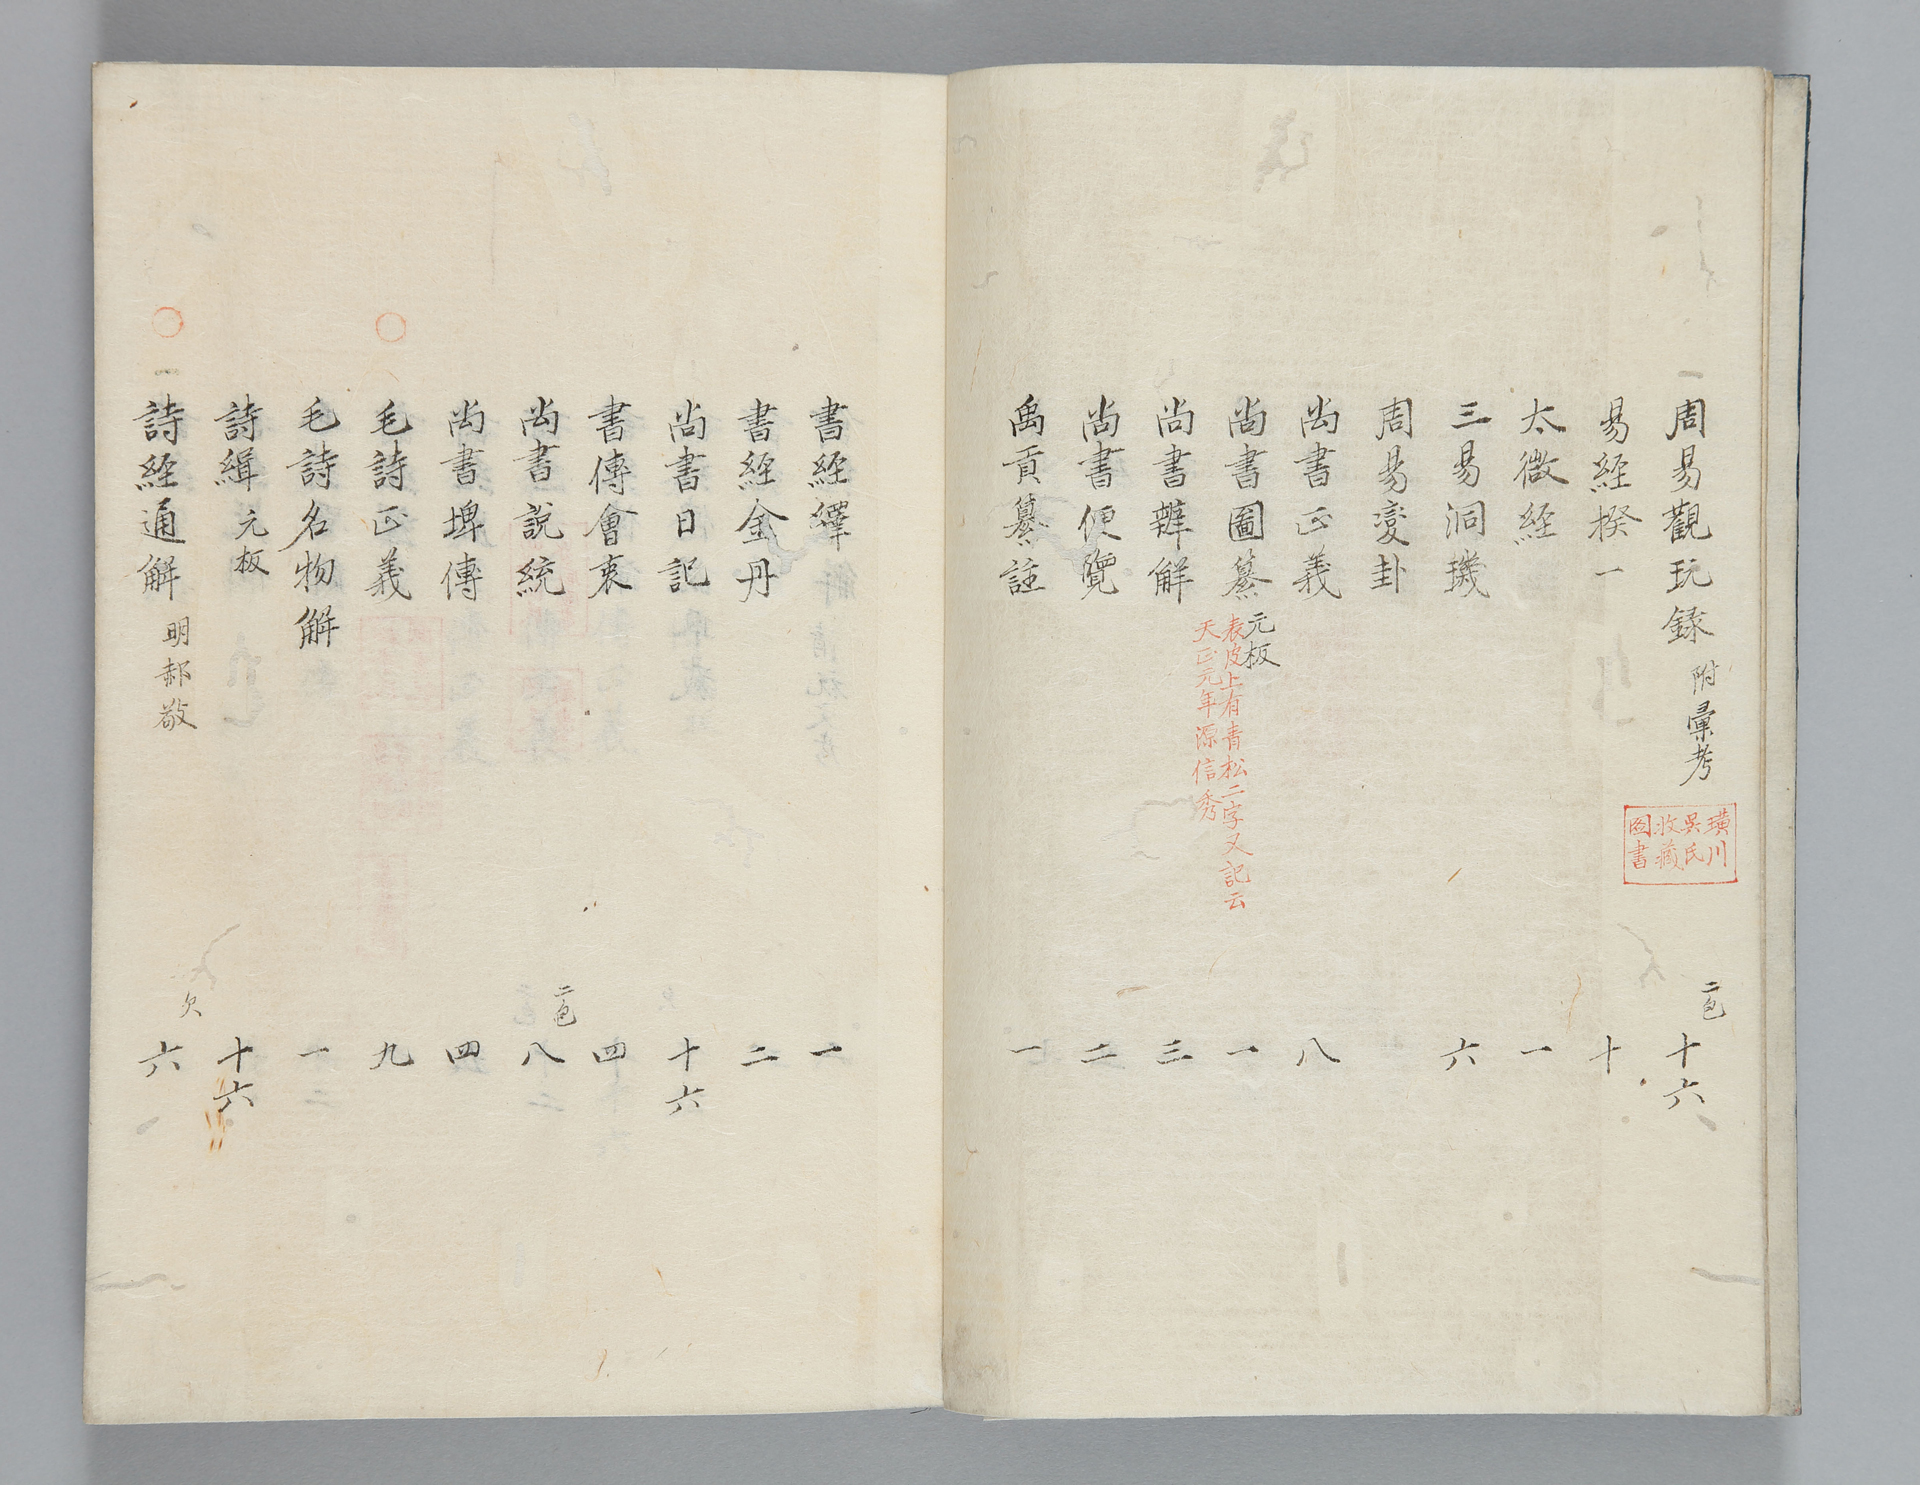 一周易觀玩録 附彙考 二包 十六
璜川
吳氏
收藏
圖書
易經揆一 十
太微經 一
三易洞璣 六
周易變卦
尚書正義 八
尚書圖纂 元板 一
表皮上有青松二字又記云
天正元年源信秀
尚書辨解 三
尚書便覽 二
禹貢纂註 一
書經繹 一
書經金丹 二
尚書日記 十六
書傳會衷 四
尚書說統 二包 八
尚書埤傳 四
○毛詩正義 九
毛詩名物解 一
詩緝 元板 十六
○一詩經通解 明郝敬 欠 六